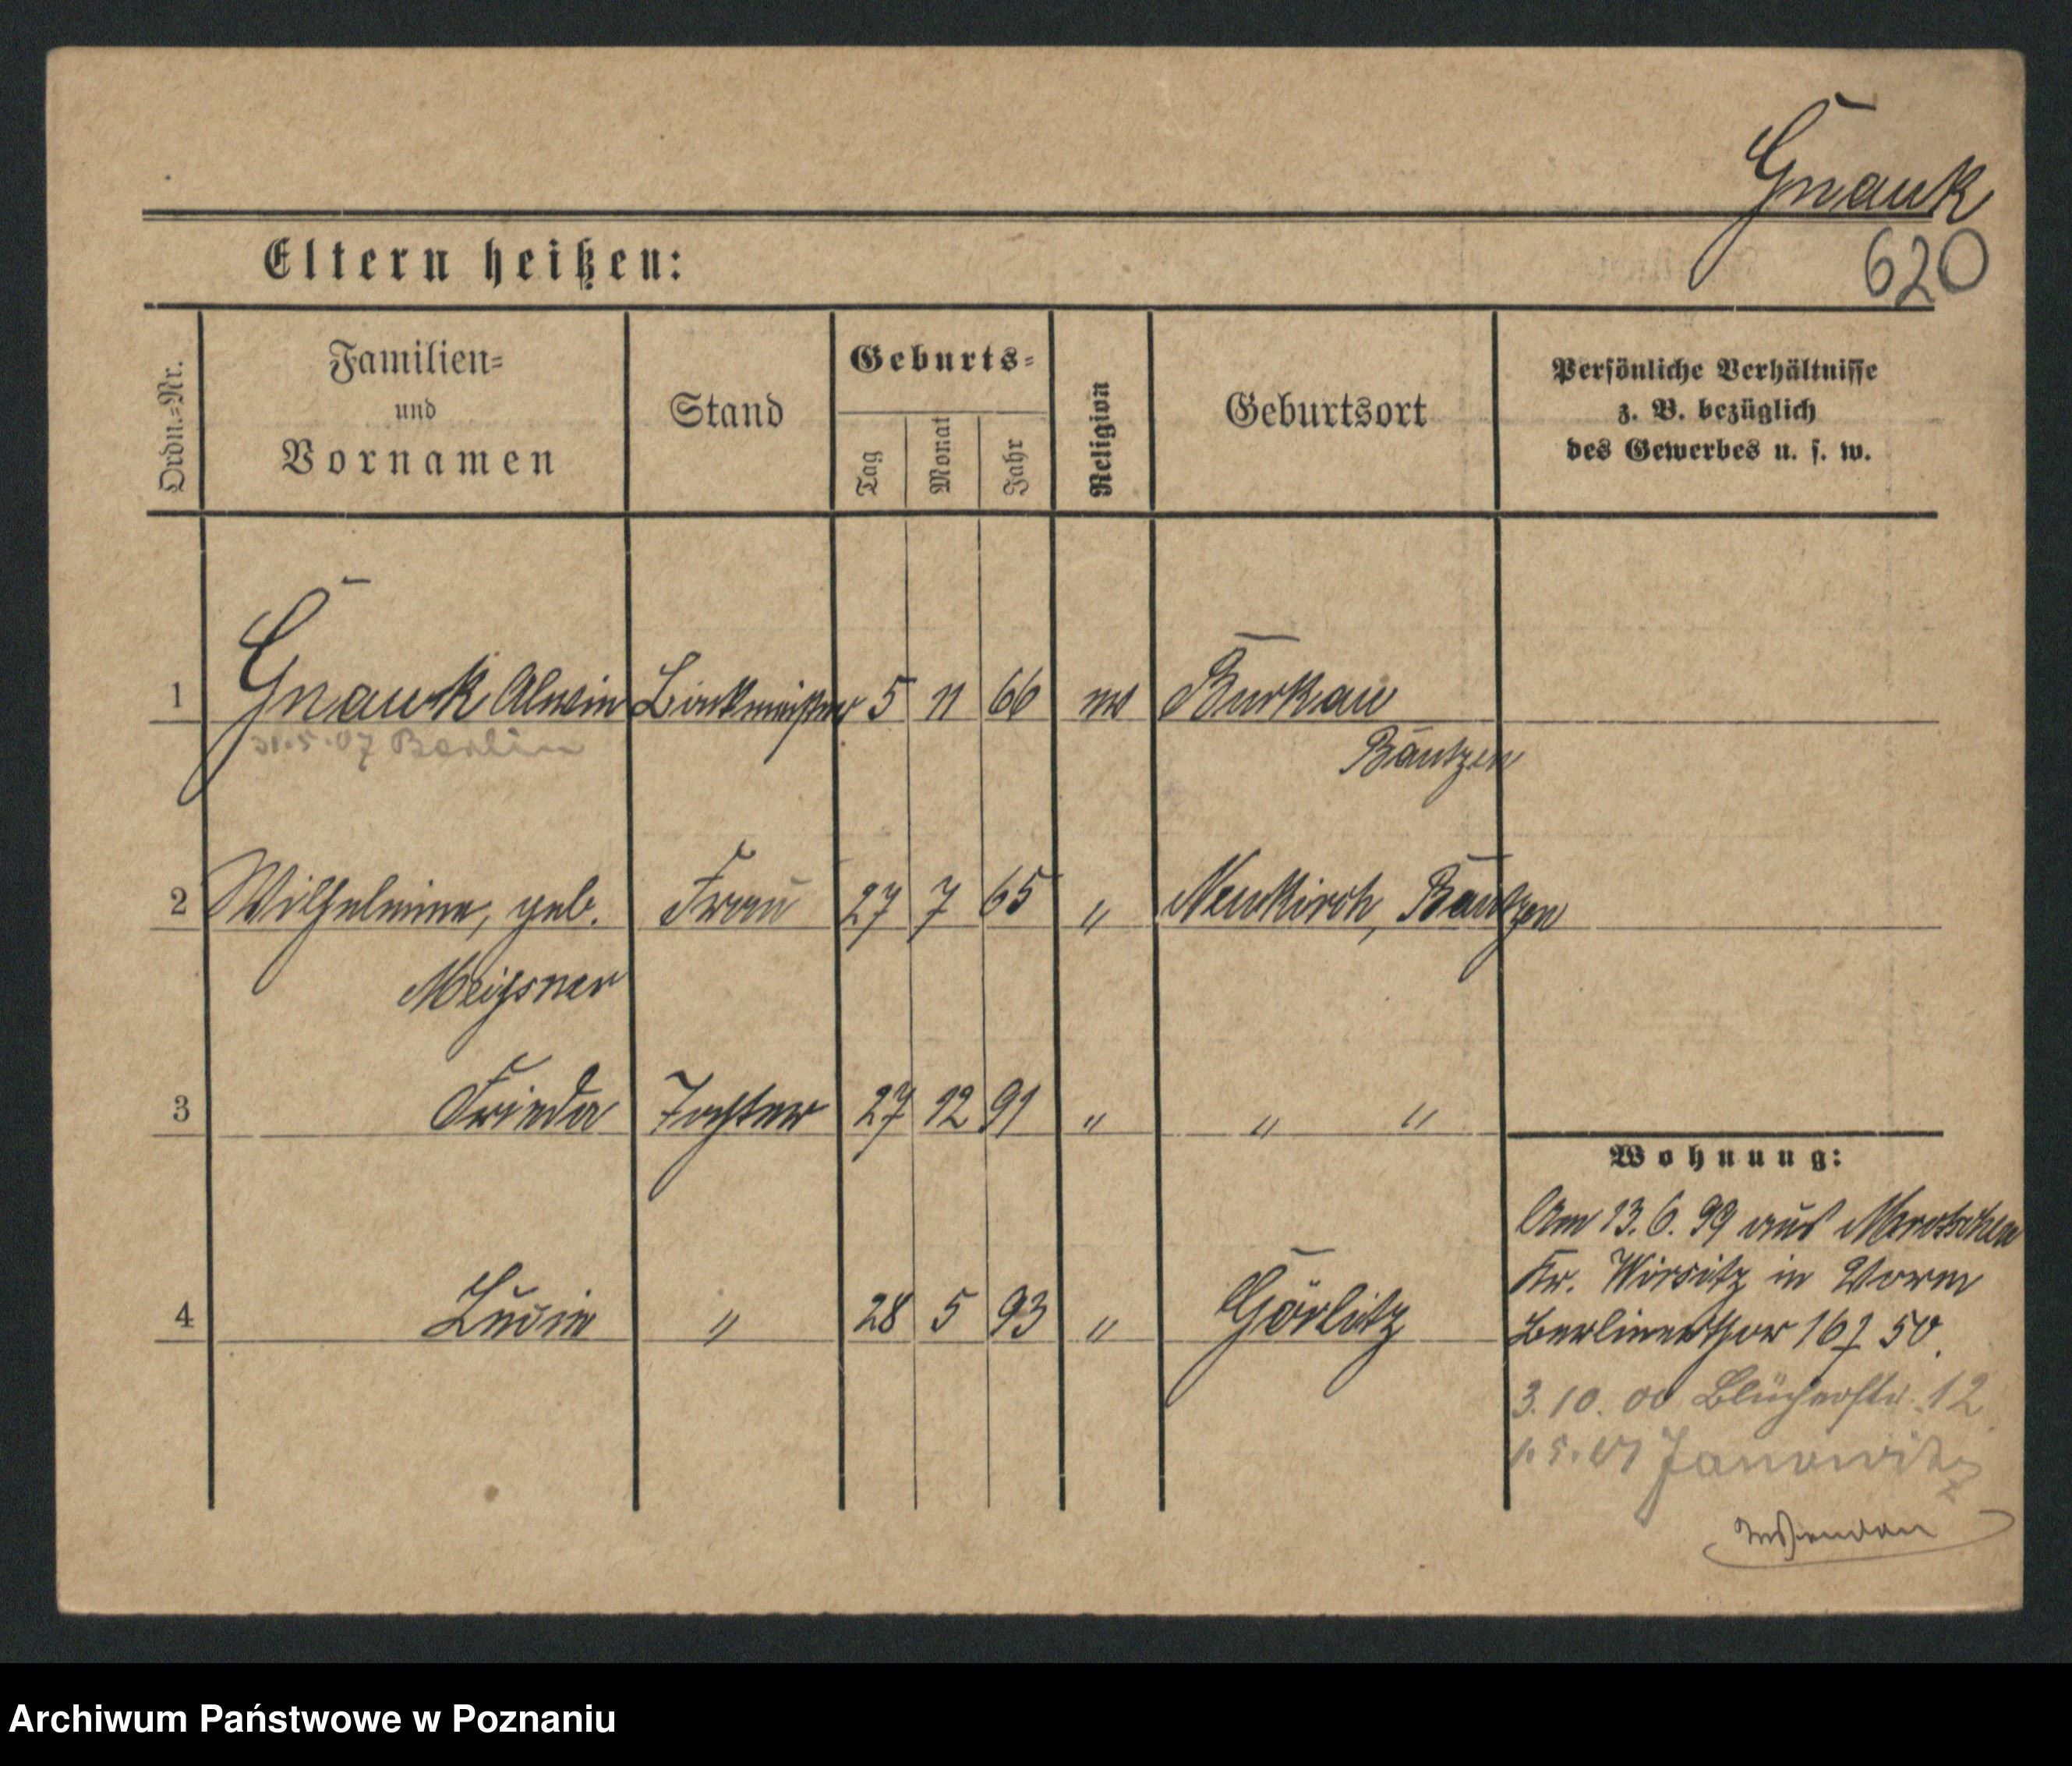 Gnauk
620
Eltern heißen:
Ordn.=Nr.
Familien=
und
Vornamen
Stand
Geburts=
Tag
Monat
Jahr
Religion
Geburtsort
Persönliche Verhältnisse
z. B. bezüglich
des Gewerbes u. s. w.
1 Gnauk Alwin 5 11 66 Burkau
31.5.07 Berlin
Bautzen
2 Wilhelmine, geb. Frau 27 7 65 " Neukirch, Bautzen
Meißner
3 Frieda Tochter 27 12 91 " " "
Wohnung:
Am 13.6.99 aus Mrotschen
Kr. Wirsitz in Worm
4 " 28 5 93 " Görlitz
Berlinerthor 167 50.
3.10.00 Blücherstr. 12
1.5.01 Janowitz
Archiwum Państwowe w Poznaniu